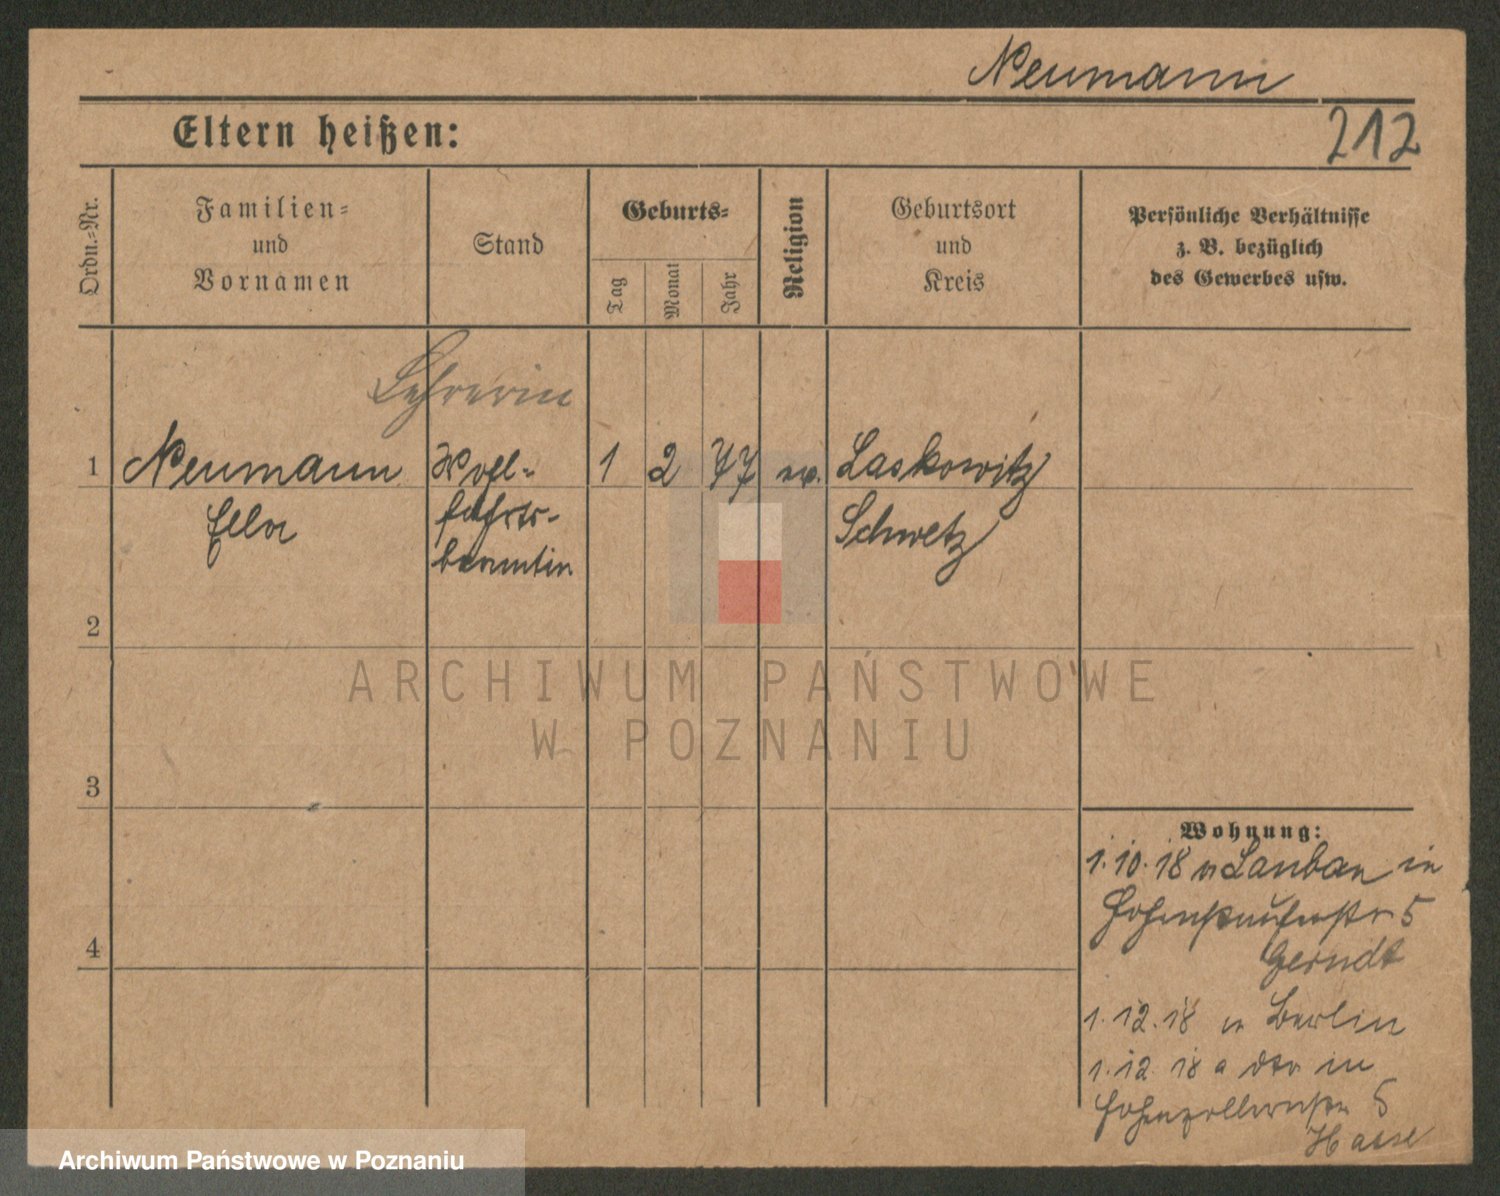 Neumann
Eltern heißen:
212
Ordn.-Nr.
Familien-
und
Vornamen
Stand
Geburts-
Tag
Monat
Jahr
Religion
Geburtsort
und
Kreis
Persönliche Verhältnisse
z. B. bezüglich
des Gewerbes usw.
Lehrerin
1 Neumann Wohl- 1 2 77 ev. Laskowitz
Ella fahrts- Schwetz
beamtin
2
3
4
Wohnung:
1.10.18 v Lauban in
Hohenstaufenstr 5
Gerndt
1.12.18 n Berlin
1.12.18 a dto in
Hohenzollernstr 5
Hasse
ARCHIWUM PAŃSTWOWE
W POZNANIU
Archiwum Państwowe w Poznaniu